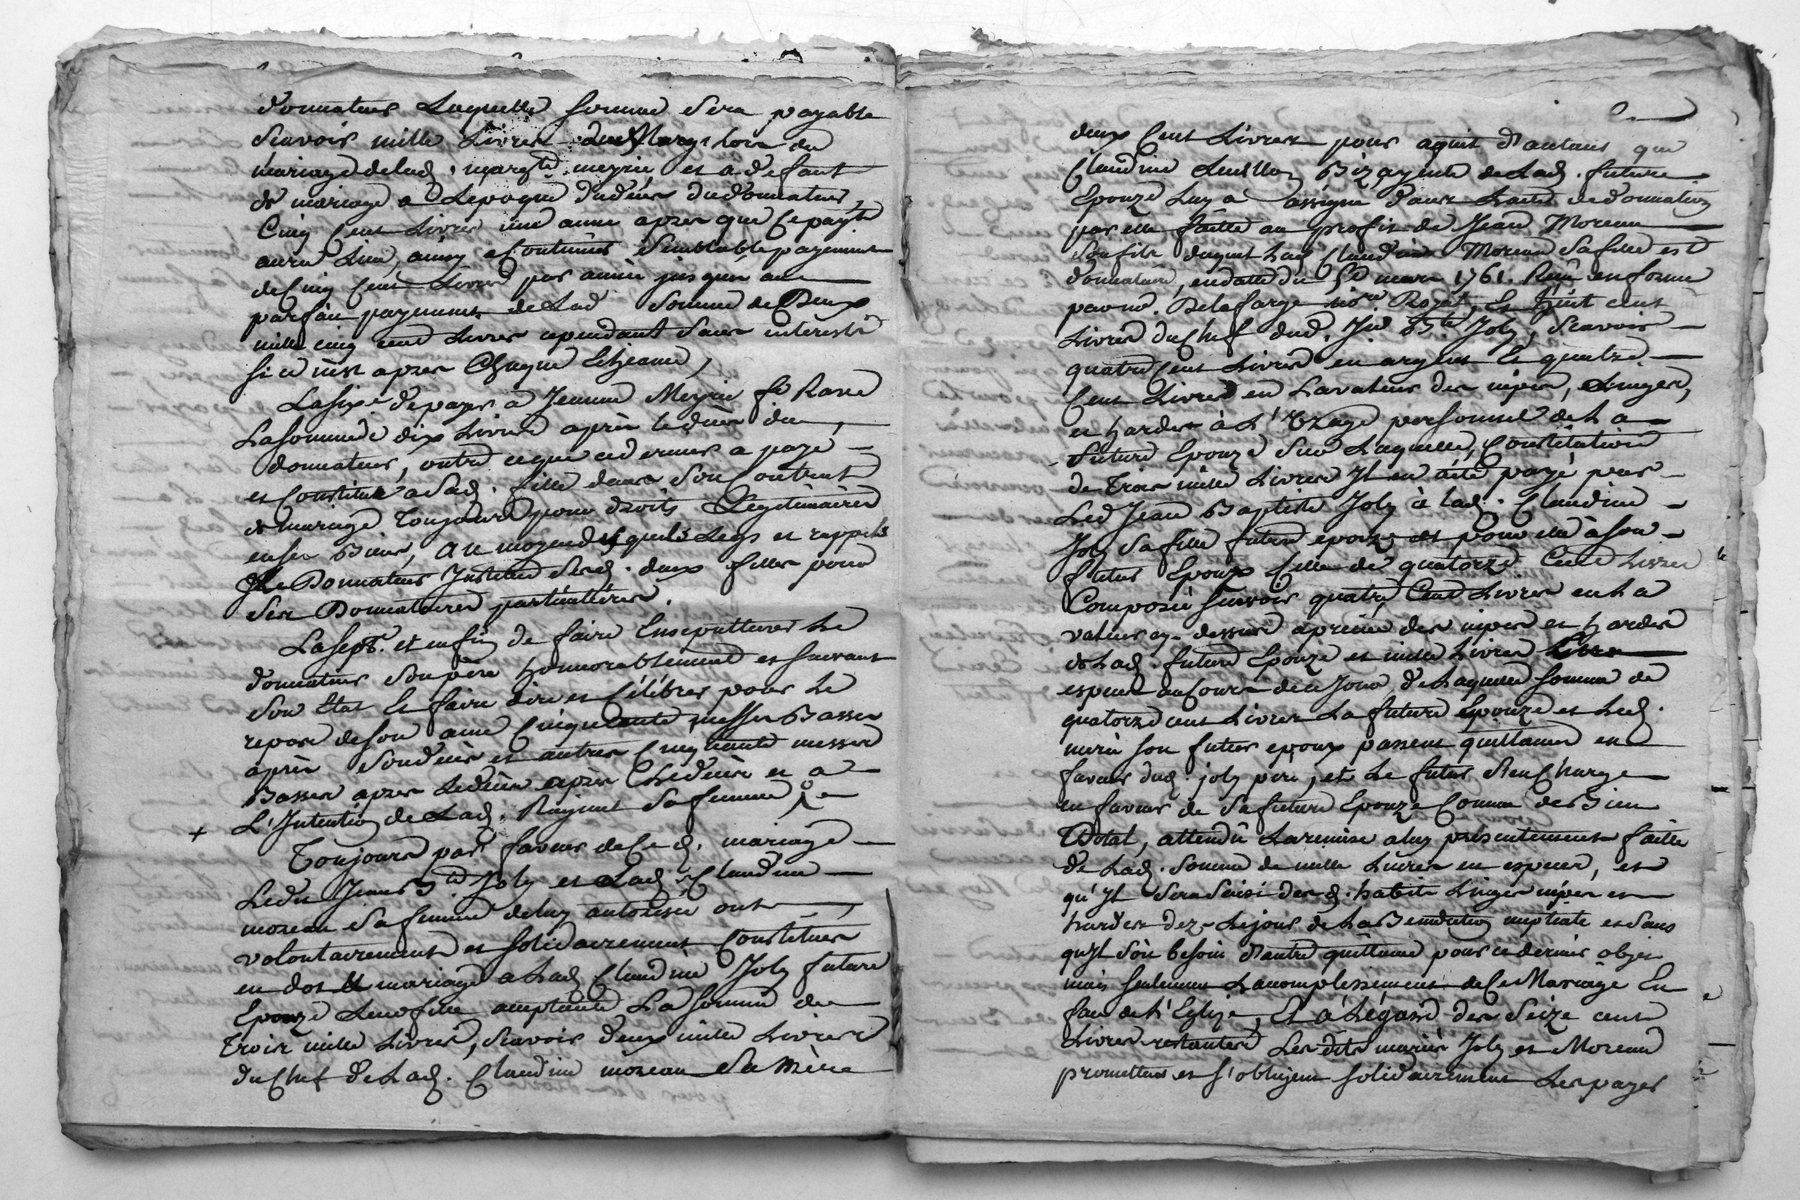 donnateur Laquelle somme sera payable
Scavoir mille Livres lors du
mariage de lad. margte meyrié et a deffaut
de mariage a Lepoque du déces du donnateur,
Cinq Cent Livres une année apres que ce payt
aura Lieu, ainsy a Continuer semblable payement
de Cinq Cent Livres par année jusques au
parfait payement de Lad somme de Deux
mille cinq cent Livres cependant sans interest
si ce n'est apres Chaque Echeance,
La sixe de payer à Jeanne Meyrié fe Rave
La somme de dix Livres après le décès du
donnateur, outre ce que ce dernier a payé
et Constitué a sad. fille dans son Contrat
de mariage Toujours pour droits Legitimaires
en ses Biens, au moyen desquels Legs et rappels
Le Donnateur Institue sesd. deux filles pour
ses Donnatoires particullières.
La sept. et enfin de faire Ensepulturer Le
donnateur son père honnorablement et suivant
son Etat Et faire dire et Célébrer pour Le
repos de son ame Cinquante messes Basses
après son décès et autres Cinquante messes
Basses apres Le décès et a
L'Intention de Lad. sa femme
+
Toujours par faveur de Ce d. mariage
Ledit Jean Bte Joly et Lad. Claudine
moreau sa femme de luy autorisée ont
volontairement et solidairement Constitué
en dot mariage a Lad. Claudine Joly future
Epouze Leur fille acceptante La somme de
Trois mille Livres, Scavoir deux mille Livres
du Chef de Lad. Claudine moreau sa mère
deux Cent Livres pour autant que
Claudine Bizayeule de Lad. future
Epouze Luy a assigné dans Lacte de donnation
par elle faitte au profit de Jean Moreau
son fils duquel Lad. Claudine Moreau sa fille est
donnataire, en datte du mars 1761. Reçu en forme
par me. Delafarge nore Royal, Et huit cent
Livres du Chef dud. Jn Bte Joly, Scavoir
quatre Cent Livres en argent Et quatre
Cent Livres en La valeur des nipes, Linges,
et hardes à L'Uzage personnel de La
future Epouze sur Laquelle Constitution
de Trois mille Livres Il en a été payé par
Led Jean Baptiste Joly à Lad. Claudine
Joly sa fille future epouze et pour elle à son
futur Epoux celle de quatorze Cent Livres
Composée sçavoir quatre Cent Livres en La
valeur cy-dessus aprécié des nipes et hardes
de Lad. future Epouze et mille Livres
especes au Cours de ce Jour de Laquelle somme de
quatorze cent Livres La future Epouze et Led.
son futur epoux passent quittance en
faveur dud. joly père, et Le futur s'en Charge
en faveur de sa future Epouze Comme de Bien
Dotal, attendu La remise a luy présentement faitte
de Lad. somme de mille Livres en especes, et
qu'Il sera saisi des d. habits Linges nipes et
hardes dez Le jour de La Benediction nuptiale et sans
qu'Il soit besoin d'autre quittance pour ce dernier objet
mais seulement L'acomplissement de Ce Mariage En
face de L'Eglize, Et à L'égard des Seize cent
Livres restantes Les dits mariés Joly et Moreau
promettent et s'obligent solidairement Les payer